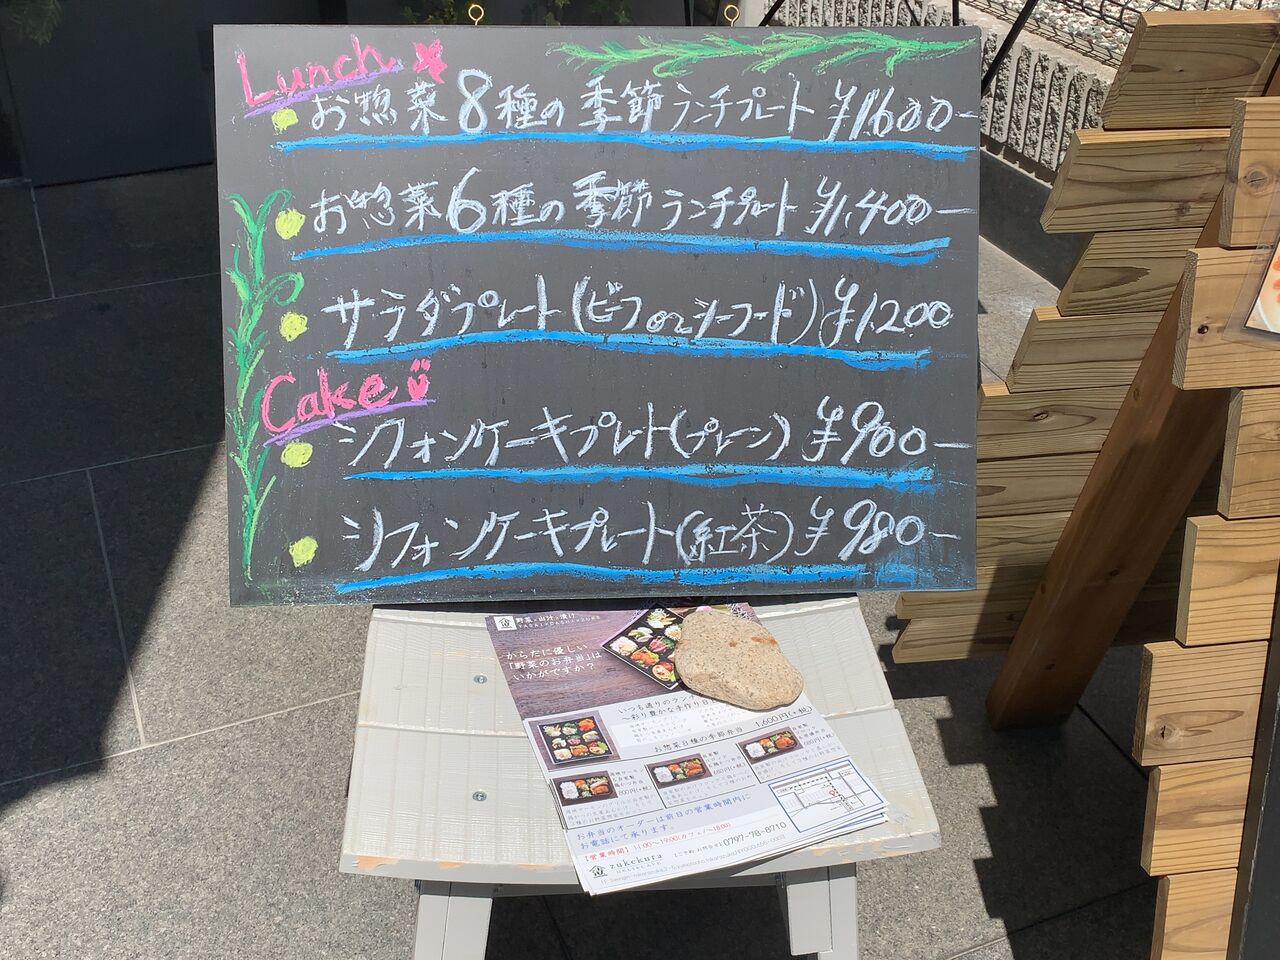 Lunch
お惣菜8種の季節ランチプレート ¥1600-
お惣菜6種の季節ランチプレート ¥1,400-
サラダプレート(ビーフorシーフード)¥1,200
Cake
シフォンケーキプレート(プレーン) ¥900-
シフォンケーキプレート(紅茶)¥980-
野菜×出汁×漬け
YASAI×DASHI×ZUKE
からだに優しい
「野菜のお弁当」は
いかがですか?
いつも通りのラン
〜彩り豊かな手作り
1,600円(+税)
お惣菜8種の季節弁当
800円(+税)
680円(+税)
680円(+税)
お弁当のオーダーは前日の営業時間内に
お電話にて承ります。
【営業時間】11:00〜19:00(カフェ/〜18:00)
【ご予約・お問合せ】0797-78-8710
zukekura
DELI&CAFE